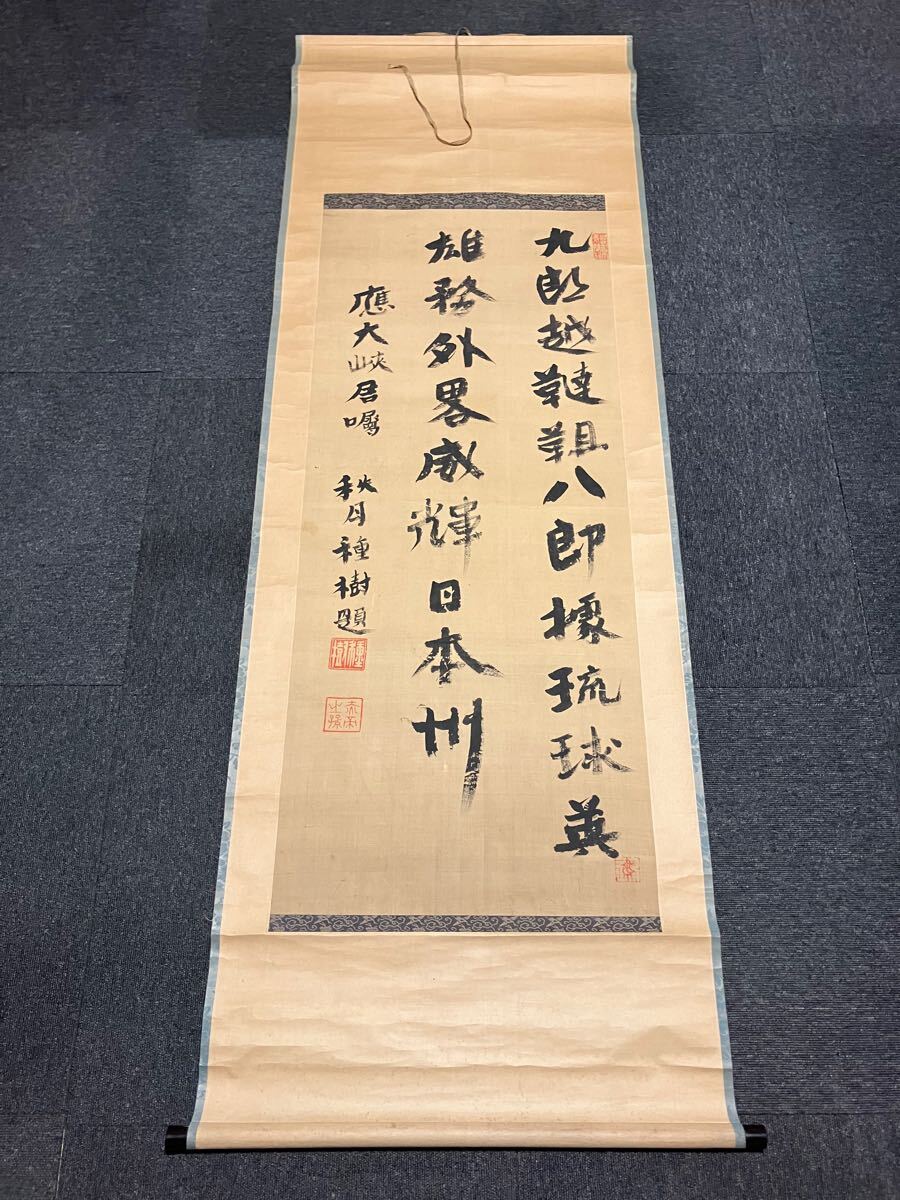 九郎越韃靼八郎據琉球英
雄務外畧威輝日本州
應大峽君囑 秋月種樹題
種樹